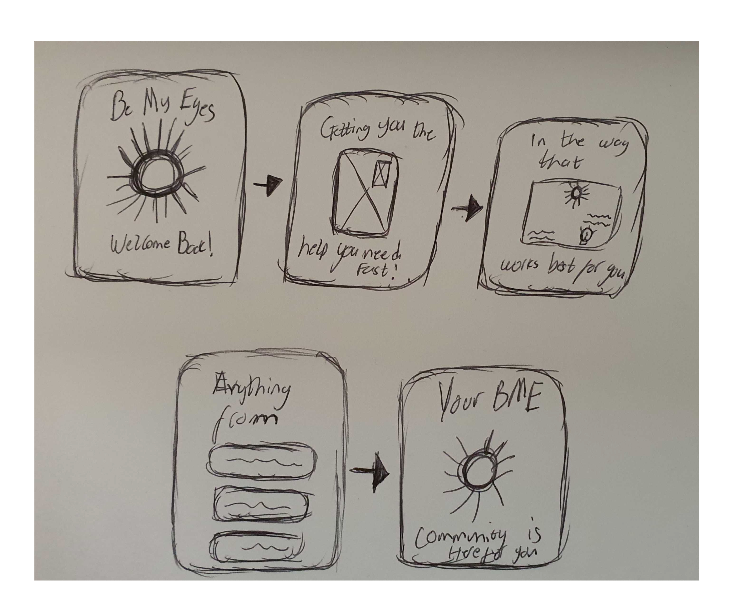 Be My Eyes
Welcome Back!
Getting you the
help you need
Fast!
In the way
that
works best for you
Anything
from
Your BME
Community is
Here for you